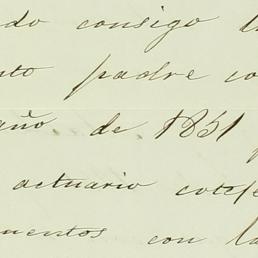 do consigo
nto padre co
año de 1851
actuario cotej
mentos con la